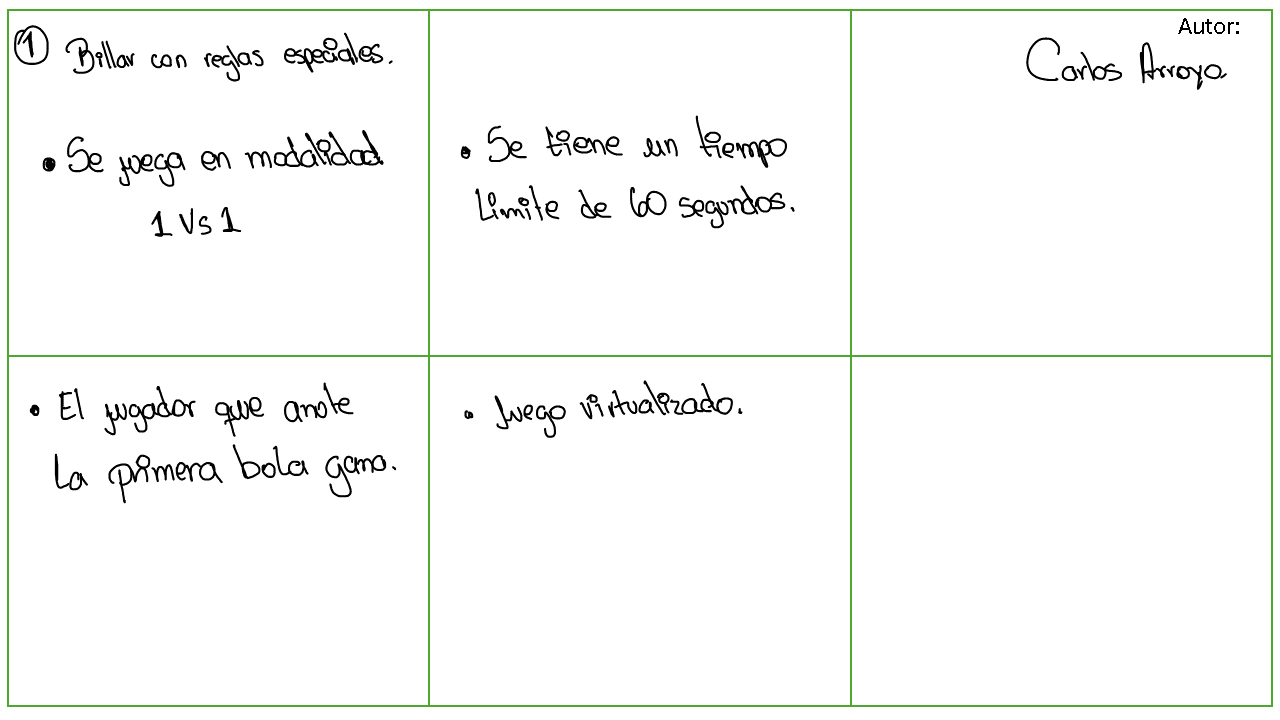 1 Billar con reglas especiales.
• Se juega en modalidad
1 Vs 1
• Se tiene un tiempo
Limite de 60 segundos.
Autor:
Carlos Arroyo
• El jugador que anote
La primera bola gana.
• Juego virtualizado.